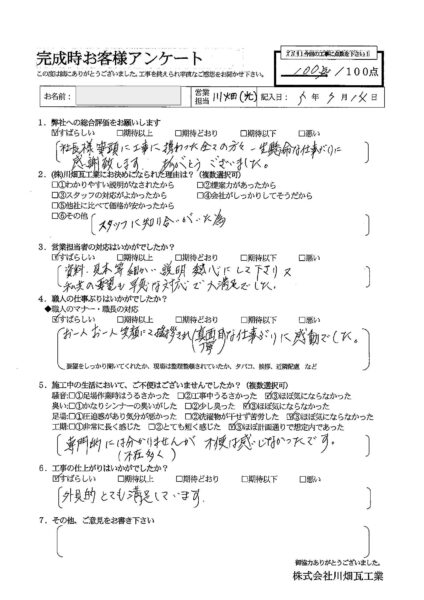 完成時お客様アンケート
この度は誠にありがとうございました。工事を終えられ率直なご感想をお聞かせ下さい。
100点/100点
お名前：
営業担当 川畑(光) 記入日： 5年 3月 14日
1．弊社への総合評価をお願いします
☑すばらしい □期待以上 □期待どおり □期待以下 □悪い
社長様筆頭に工事に携わった全ての方々 一生懸命な仕事ぶりに
感謝致します ありがとうございました。
2．(株)川畑瓦工業にお決めになられた理由は？（複数選択可）
□①わかりやすい説明がなされたから □②提案力があったから
□③スタッフの対応がよかったから □④会社がしっかりしてそうだから
□⑤他社に比べて価格が安かったから
□⑥その他
スタッフに知り合いがいた為
3．営業担当者の対応はいかがでしたか？
☑すばらしい □期待以上 □期待どおり □期待以下 □悪い
資料・見本等細かい説明 熱心にして下さり又
私共の要望も 対応で大満足でした。
4．職人の仕事ぶりはいかがでしたか？
◆職人のマナー・職員の対応
☑すばらしい □期待以上 □期待どおり □期待以下 □悪い
お一人お一人笑顔にて挨拶され 真面目な仕事ぶりに感動でした。
丁寧
要望をしっかり聞いてくれたか、現場は整理整頓されていたか、タバコ、挨拶、近隣配慮 など
5．施工中の生活において、ご不便はございませんでしたか？（複数選択可）
騒音:□①足場作業時はうるさかった □②工事中うるさかった ☑③ほぼ気にならなかった
臭い:□①かなりシンナーの臭いがした □②少し臭った ☑③ほぼ気にならなかった
足場:□①圧迫感があり気分が悪かった □②洗濯物が干せず苦労した ☑③ほぼ気にならなかった
工期:□①非常に長く感じた □②とても短く感じた ☑③ほぼ計画通りで想定内であった
専門的には分かりませんが 不便は感じなかったです。
(不在多く)
6．工事の仕上がりはいかがでしたか？
☑すばらしい □期待以上 □期待どおり □期待以下 □悪い
外見的 とても満足しています。
7．その他、ご意見をお書き下さい
御協力ありがとうございました。
株式会社川畑瓦工業